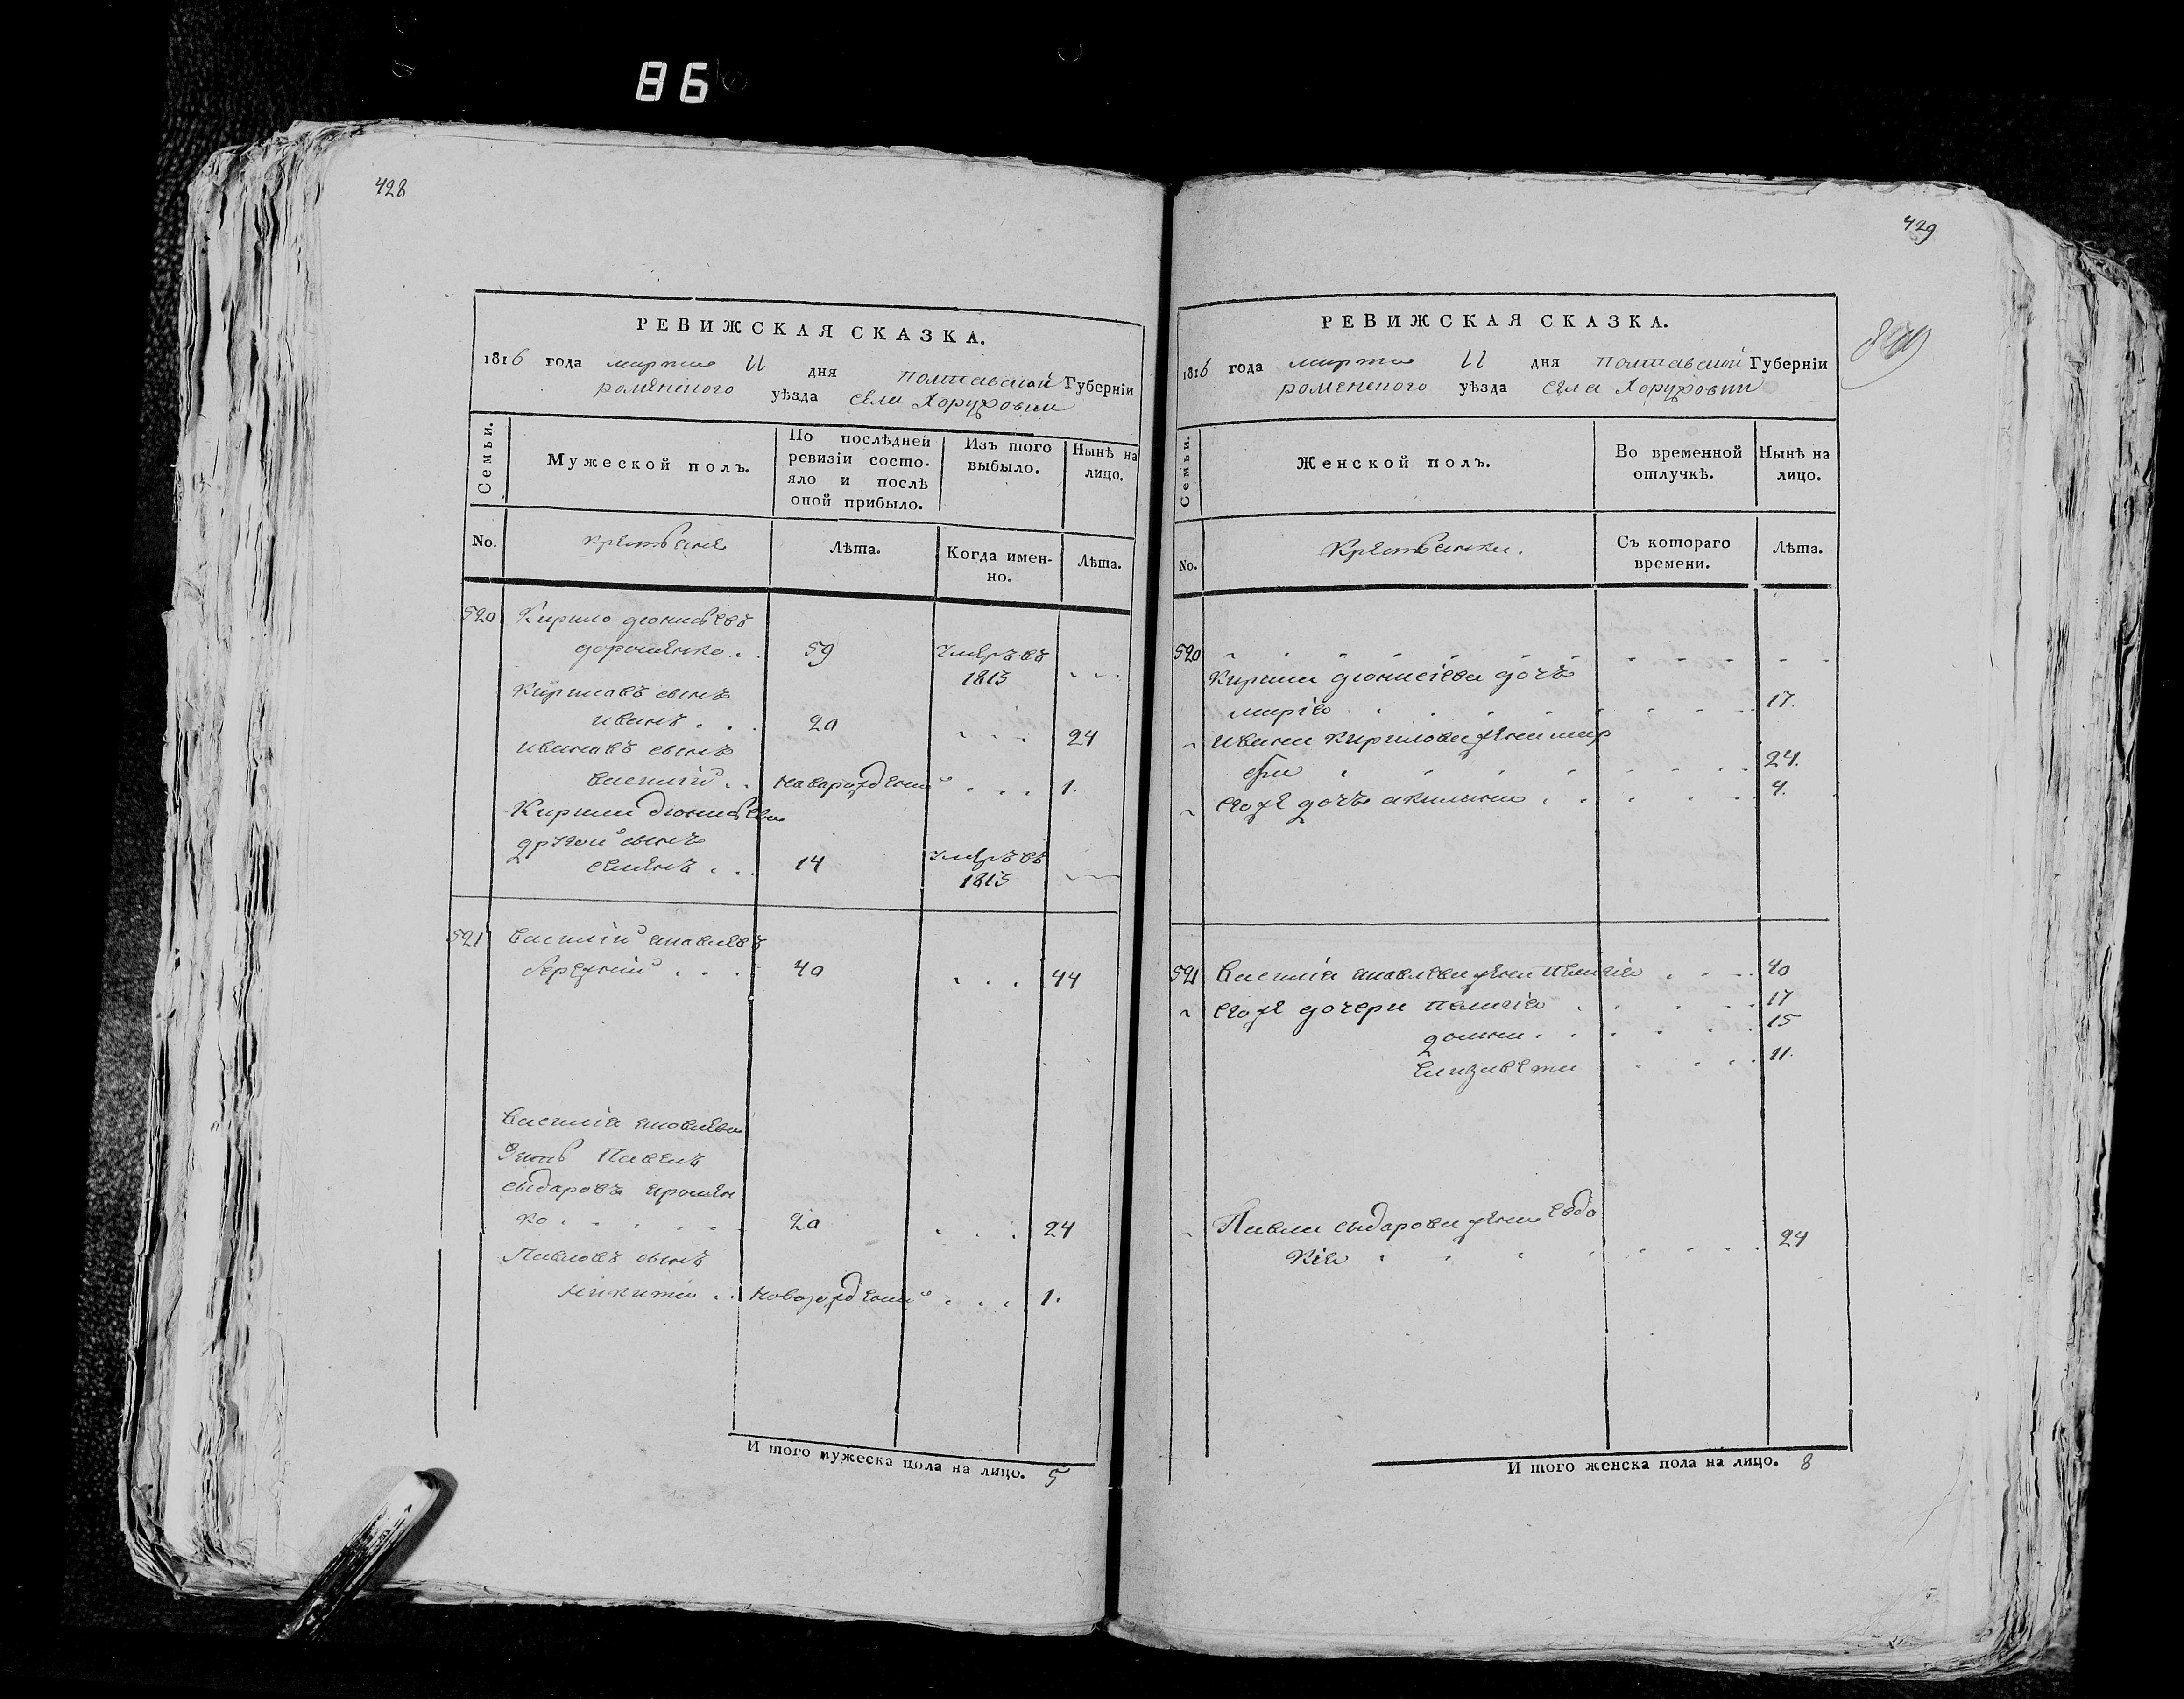 86
428
РЕВИЖСКАЯ СКАЗКА.
1816 года марта 11 дня полтавской Губерніи
роменского уѣзда села Хоружовки
Семьи.
Мужеской полъ.
По послѣдней ревизіи состо-
яло и послѣ оной прибыло.
Изъ того выбыло.
Нынѣ на лицо.
No.
крестьяне
Лѣта.
Когда имен-
но.
Лѣта.
520 Кирило дионисьевъ
дорошенко . . 59 Умеръ въ
1813
Кириловъ сынъ
иванъ . . 20 24
ивановъ сынъ
василій . . новорожденій 1.
Кирила дионисьева
другой сынъ
семенъ . . 14 Умеръ въ
1813
521 василій яковлевъ
бережній . . . 40 44
василія яковлева
Зять Павелъ
сидаровъ ярошен
ко 20 24
Павловъ сынъ
никита . . новорожденій 1.
И того мужеска пола на лицо. 5
429
РЕВИЖСКАЯ СКАЗКА.
1816 года марта 11 дня полтавской Губерніи
роменского уѣзда села Хоружовки
Семьи.
Женской полъ.
Во временной отлучкѣ.
Нынѣ на лицо.
No.
Крестьянки.
Съ котораго времени.
Лѣта.
520
Кирила дионисіева дочъ
марія 17.
ивана кирилова жена мар
фа 24.
егоже дочъ акилина 4.
521 василія яковлева жена пелагія 40
егоже дочери пелагія 17
домна 15
Елизавета 11.
Павла сидарова жена евдо
кія 24
И того женска пола на лицо. 8